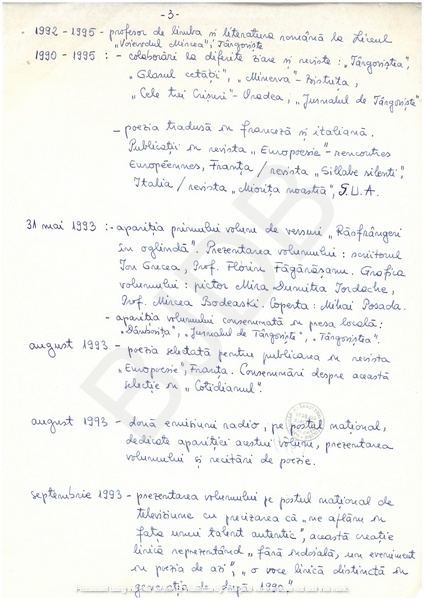 -3-
1992 - 1995 - profesor de limba și literatura română la Liceul
"Voievodul Mircea", Târgoviște
1990 - 1995 : - colaborări la diferite ziare și reviste : "Târgoviștea",
"Glasul cetății", "Minerva" - Bistrița,
"Cele trei Crișuri" - Oradea, "Jurnalul de Târgoviște"
- poezia tradusă în franceză și italiană.
Publicații în revista "Europoesie" - rencontres
Européennes, Franța / revista "Sillabe silenti",
Italia / revista "Miorița noastră", S.U.A.
31 mai 1993 : - apariția primului volum de versuri "Răsfrângeri
în oglindă". Prezentarea volumului : scriitorul
Ion Grecea, Prof. Florin Făgărășanu. Grafia
volumului : pictor Mira Dumitra Iordache,
Prof. Mircea Bodeaski. Coperta : Mihai Posada.
- apariția volumului consemnată în presa locală :
"Dâmbovița", "Jurnalul de Târgoviște", "Târgoviștea".
august 1993 - poezia selectată pentru publicarea în revista
"Europoesie", Franța. Consemnări despre această
selecție în "Cotidianul".
august 1993 - două emisiuni radio, pe postul național,
dedicate apariției acestui volum, prezentarea
volumului și recitări de poezie.
septembrie 1993 - prezentarea volumului pe postul național de
televiziune cu precizarea că "ne aflăm în
fața unui talent autentic", această creație
lirică reprezentând "fără îndoială, un eveniment
în poezia de azi", "o voce lirică distinctă în
generația de după 1990"
BVDB